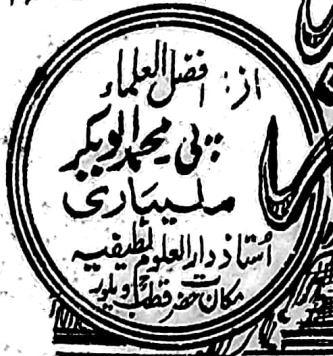 از: افضل العلماء
پی محمد ابوبکر
ملیباری
استاذ دارالعلوم لطیفیہ
مکان حضرت قطب ویلور